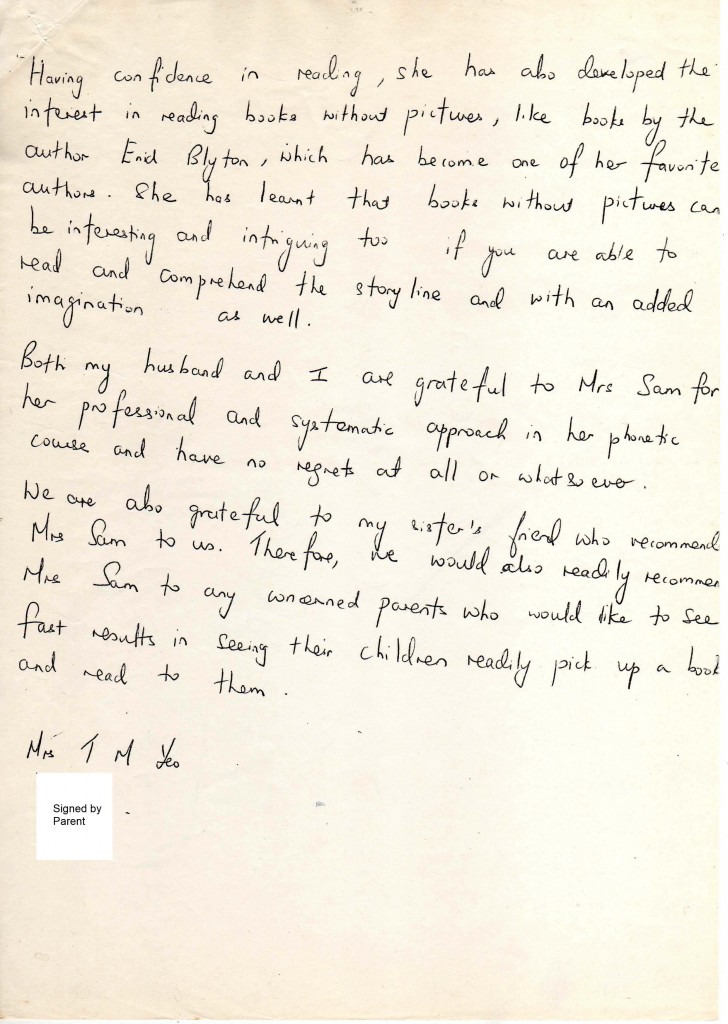 Having confidence in reading, she has also developed the
interest in reading books without pictures, like books by the
author Enid Blyton, which has become one of her favorite
authors. She has learnt that books without pictures can
be interesting and intriguing too if you are able to
read and comprehend the story line and with an added
imagination as well.
Both my husband and I are grateful to Mrs Sam for
her professional and systematic approach in her phonetic
course and have no regrets at all or whatsoever.
We are also grateful to my sister's friend who recommend
Mrs Sam to us. Therefore, we would also readily recommen
Mrs Sam to any concerned parents who would like to see
fast results in seeing their children readily pick up a book
and read to them.
Mrs T M Yeo
Signed by
Parent